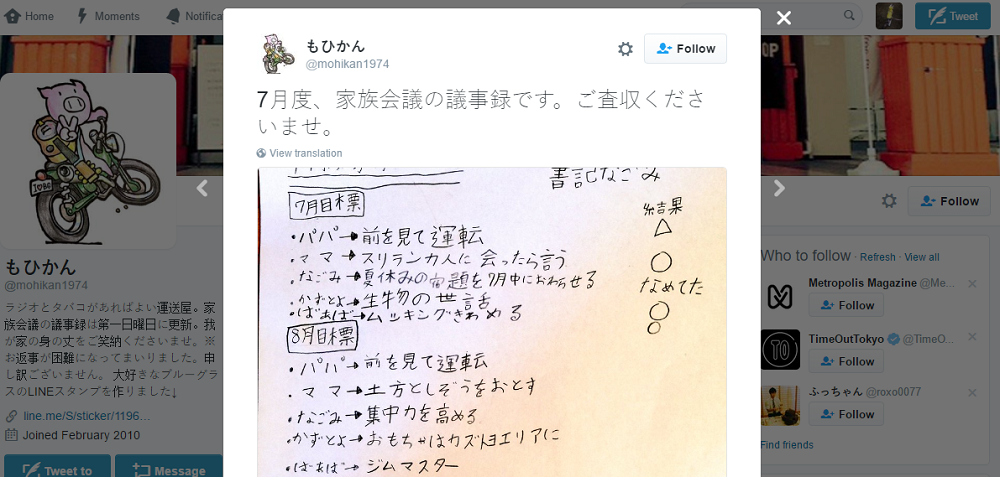 Home
Moments
Notifica
Tweet
もひかん
@mohikan1974
Follow
7月度、家族会議の議事録です。ご査収くださ
いませ。
View translation
書記なごみ
7月目標
結果
・パパ→前を見て運転 △
・ママ→スリランカ人に会ったら言う ○
・なごみ→夏休みの宿題を7月中におわらせる なめてた
・かずとよ→生物の世話 ○
・ばぁば→ムッキングきわめる ○
8月目標
・パパ→前を見て運転
・ママ→土方としぞうをおとす
・なごみ→集中力を高める
・かずとよ→おもちゃはカズトヨエリアに
・ばぁば→ジムマスター
I♥BG
もひかん
@mohikan1974
ラジオとタバコがあればよい運送屋。家
族会議の議事録は第一日曜日に更新。我
が家の身の丈をご笑納くださいませ。※
お返事が困難になってまいりました。申
し訳ございません。 大好きなブルーグラ
スのLINEスタンプを作りました↓
line.me/S/sticker/1196...
Joined February 2010
Tweet to
Message
Follow
Who to follow · Refresh · View all
Metropolis Magazine @Me...
Follow
TimeOutTokyo @TimeO...
TO
Follow
ふっちゃん @roxo0077
Follow
Find friends